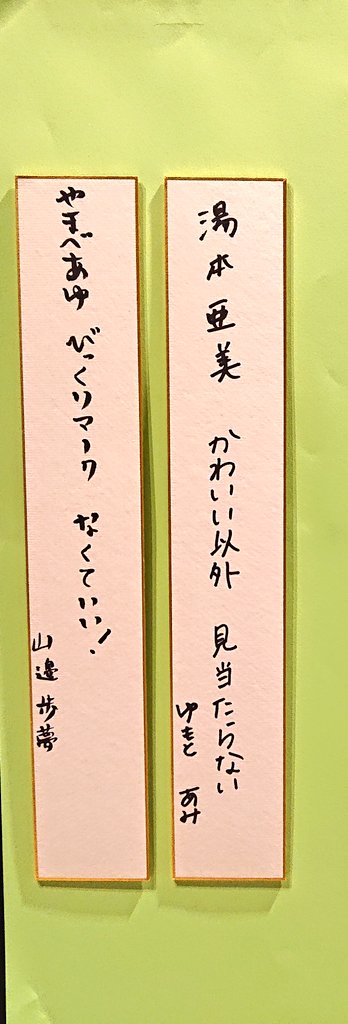 湯本亜美 かわいい以外 見当たらない
ゆもと あみ
やまべあゆ びっくりマーク なくていい!
山邉歩夢